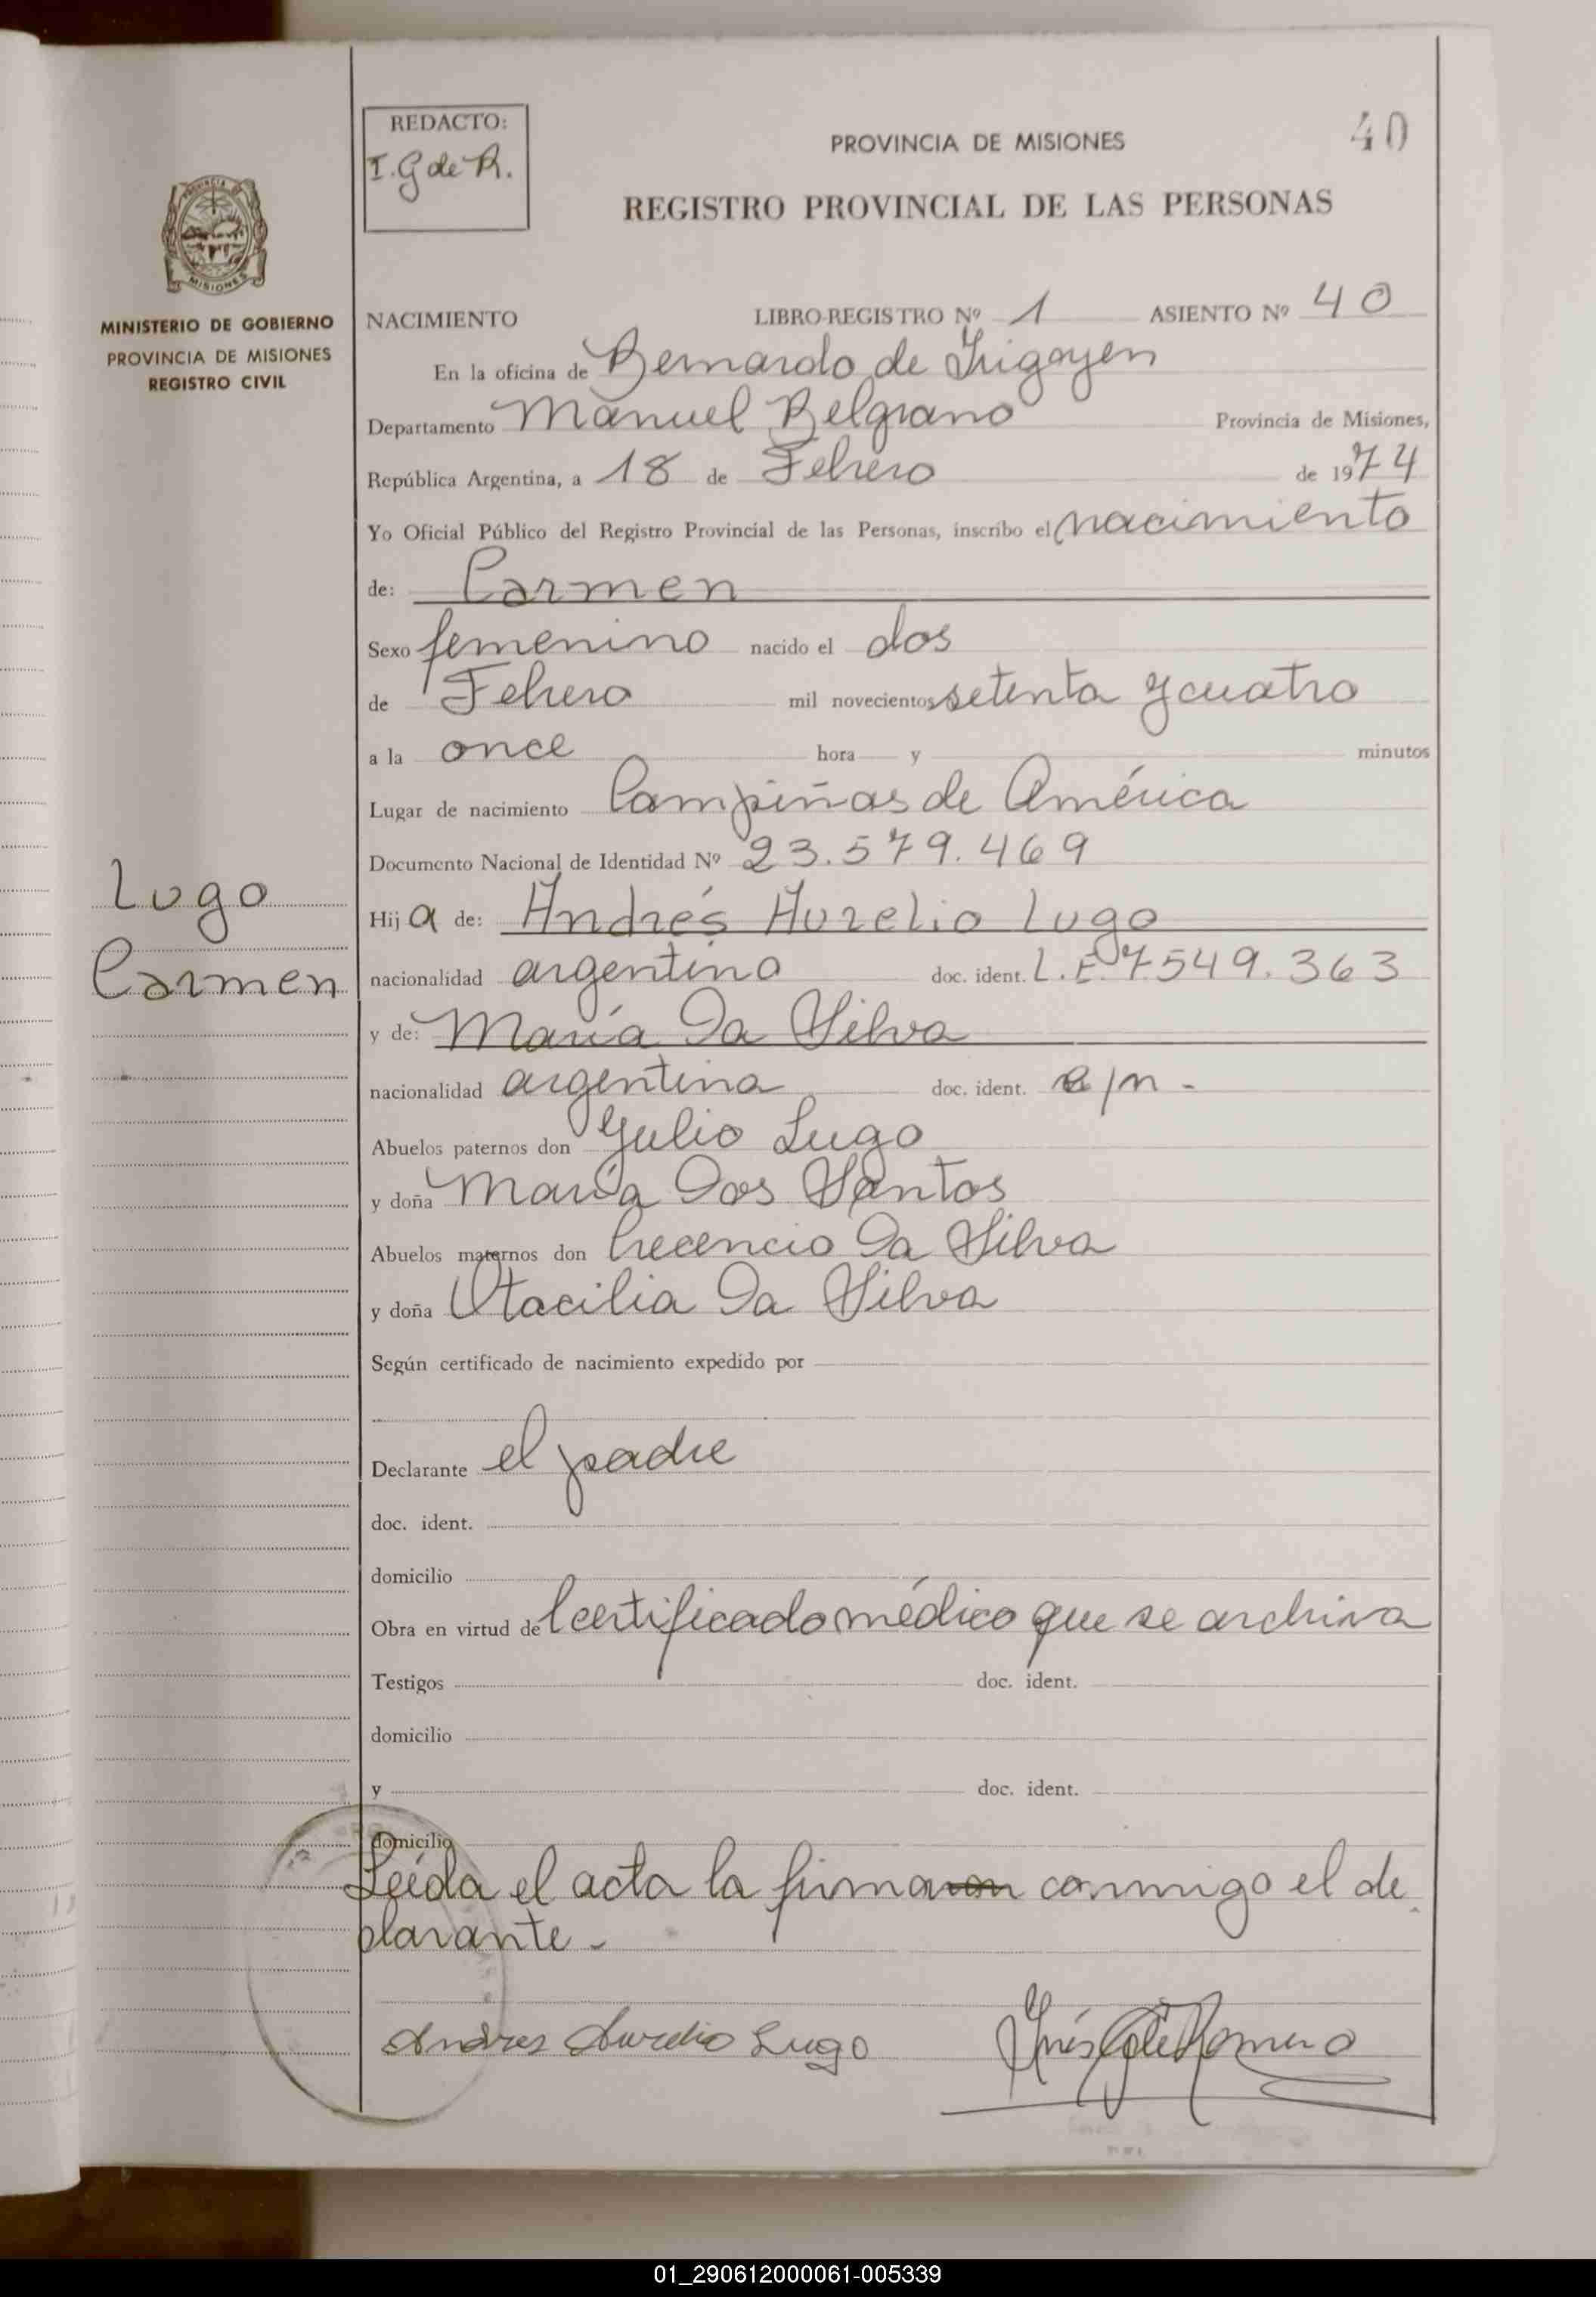 REDACTO:
I. G de R.
40
PROVINCIA DE MISIONES
REGISTRO PROVINCIAL DE LAS PERSONAS
MISIONES
MINISTERIO DE GOBIERNO
PROVINCIA DE MISIONES
REGISTRO CIVIL
NACIMIENTO LIBRO-REGISTRO Nº 1 ASIENTO Nº 40
En la oficina de Bernardo de Irigoyen
Departamento Manuel Belgrano Provincia de Misiones,
República Argentina, a 18 de Febrero de 1974
Yo Oficial Público del Registro Provincial de las Personas, inscribo el nacimiento
de: Carmen
Sexo femenino nacido el dos
de Febrero mil novecientos setenta y cuatro
a la once hora y minutos
Lugar de nacimiento Campiñas de América
Documento Nacional de Identidad Nº 23.579.469
Lugo
Carmen
Hija de: Andrés Aurelio Lugo
nacionalidad argentino doc. ident. L.E. 7.549.363
y de: María Da Silva
nacionalidad argentina doc. ident. /n -
Abuelos paternos don Julio Lugo
y doña María Dos Santos
Abuelos maternos don Crecencio Da Silva
y doña Otacilia Da Silva
Según certificado de nacimiento expedido por
Declarante el padre
doc. ident.
domicilio
Obra en virtud del certificado médico que se archiva
Testigos doc. ident.
domicilio
y doc. ident.
domicilio
Leída el acta la firmaron conmigo el de
clarante -
Andres Aurelio Lugo Inés G de Romero
01_290612000061-005339